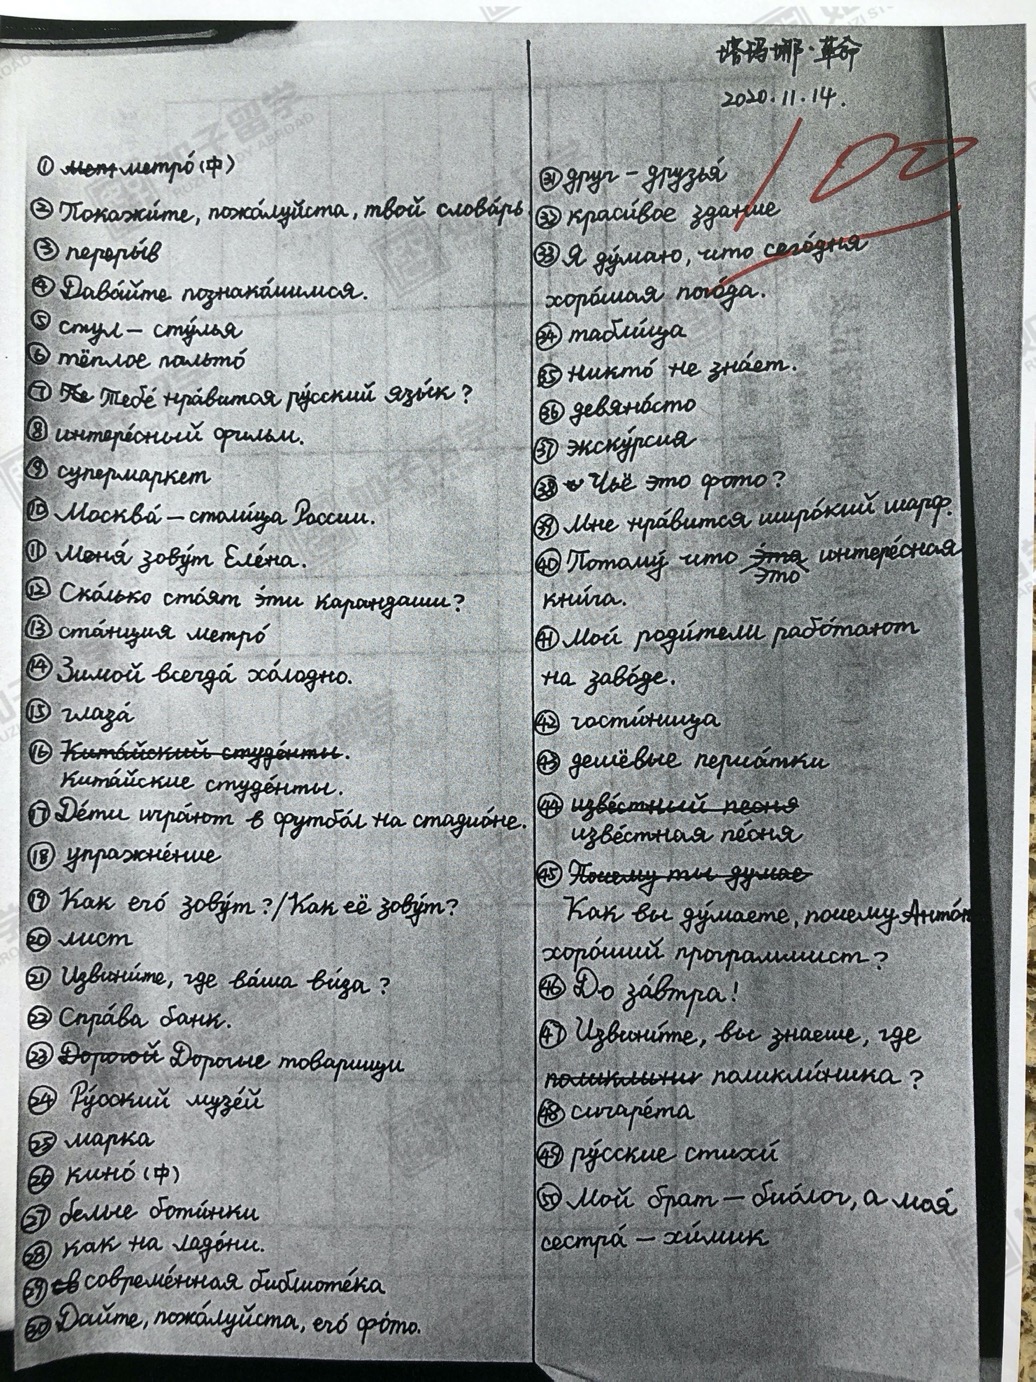 塔玛娜·革命
2020.11.14.
100
① метро́(中)
② Покажи́те, пожа́луйста, твой слова́рь
③ переры́в
④ Дава́йте познако́мимся.
⑤ стул — сту́лья
⑥ тёплое пальто́
⑦ Тебе́ нра́вится ру́сский язы́к?
⑧ интере́сный фильм.
⑨ супермаркет
⑩ Москва́ — столи́ца России.
⑪ Меня́ зову́т Еле́на.
⑫ Ско́лько сто́ят э́ти карандаши?
⑬ ста́нция метро́
⑭ Зимо́й всегда́ хо́лодно.
⑮ глаза́
⑯ Кита́йский студе́нты.
Кита́йские студе́нты.
⑰ Де́ти игра́ют в футбо́л на стадио́не.
⑱ упражне́ние
⑲ Как его́ зову́т?/Как её зову́т?
⑳ лист
㉑ Извини́те, где ва́ша ви́за?
㉒ Спра́ва банк.
㉓ Дорогой Дорогие товарищи
㉔ Ру́сский музе́й
㉕ марка
㉖ кино́(中)
㉗ белые боти́нки
㉘ как на ладо́ни.
㉙ совреме́нная библиоте́ка
㉚ Дайте, пожа́луйста, его́ фо́то.
㉛ друг — друзья́
㉜ краси́вое здание
㉝ Я ду́маю, что сего́дня
хоро́шая пого́да.
㉞ табли́ца
㉟ никто́ не зна́ет.
㊱ девяно́сто
㊲ экску́рсия
㊳ Чьё это фото?
㊴ Мне нра́вится широ́кий шарф.
㊵ Потому́ что э́та интере́сная
это
кни́га.
㊶ Мой роди́тели рабо́тают
на заво́де.
㊷ гости́ница
㊸ дешёвые перча́тки
㊹ изве́стный песня
изве́стная пе́сня
㊺ Почему ты думае
Как вы ду́маете, почему Анто́н
хоро́ший программист?
㊻ До за́втра!
㊼ Извини́те, вы знаеше, где
поликлиник поликли́ника?
㊽ сигаре́та
㊾ ру́сские стихи́
㊿ Мой брат — био́лог, а моя́
сестра́ — хи́мик